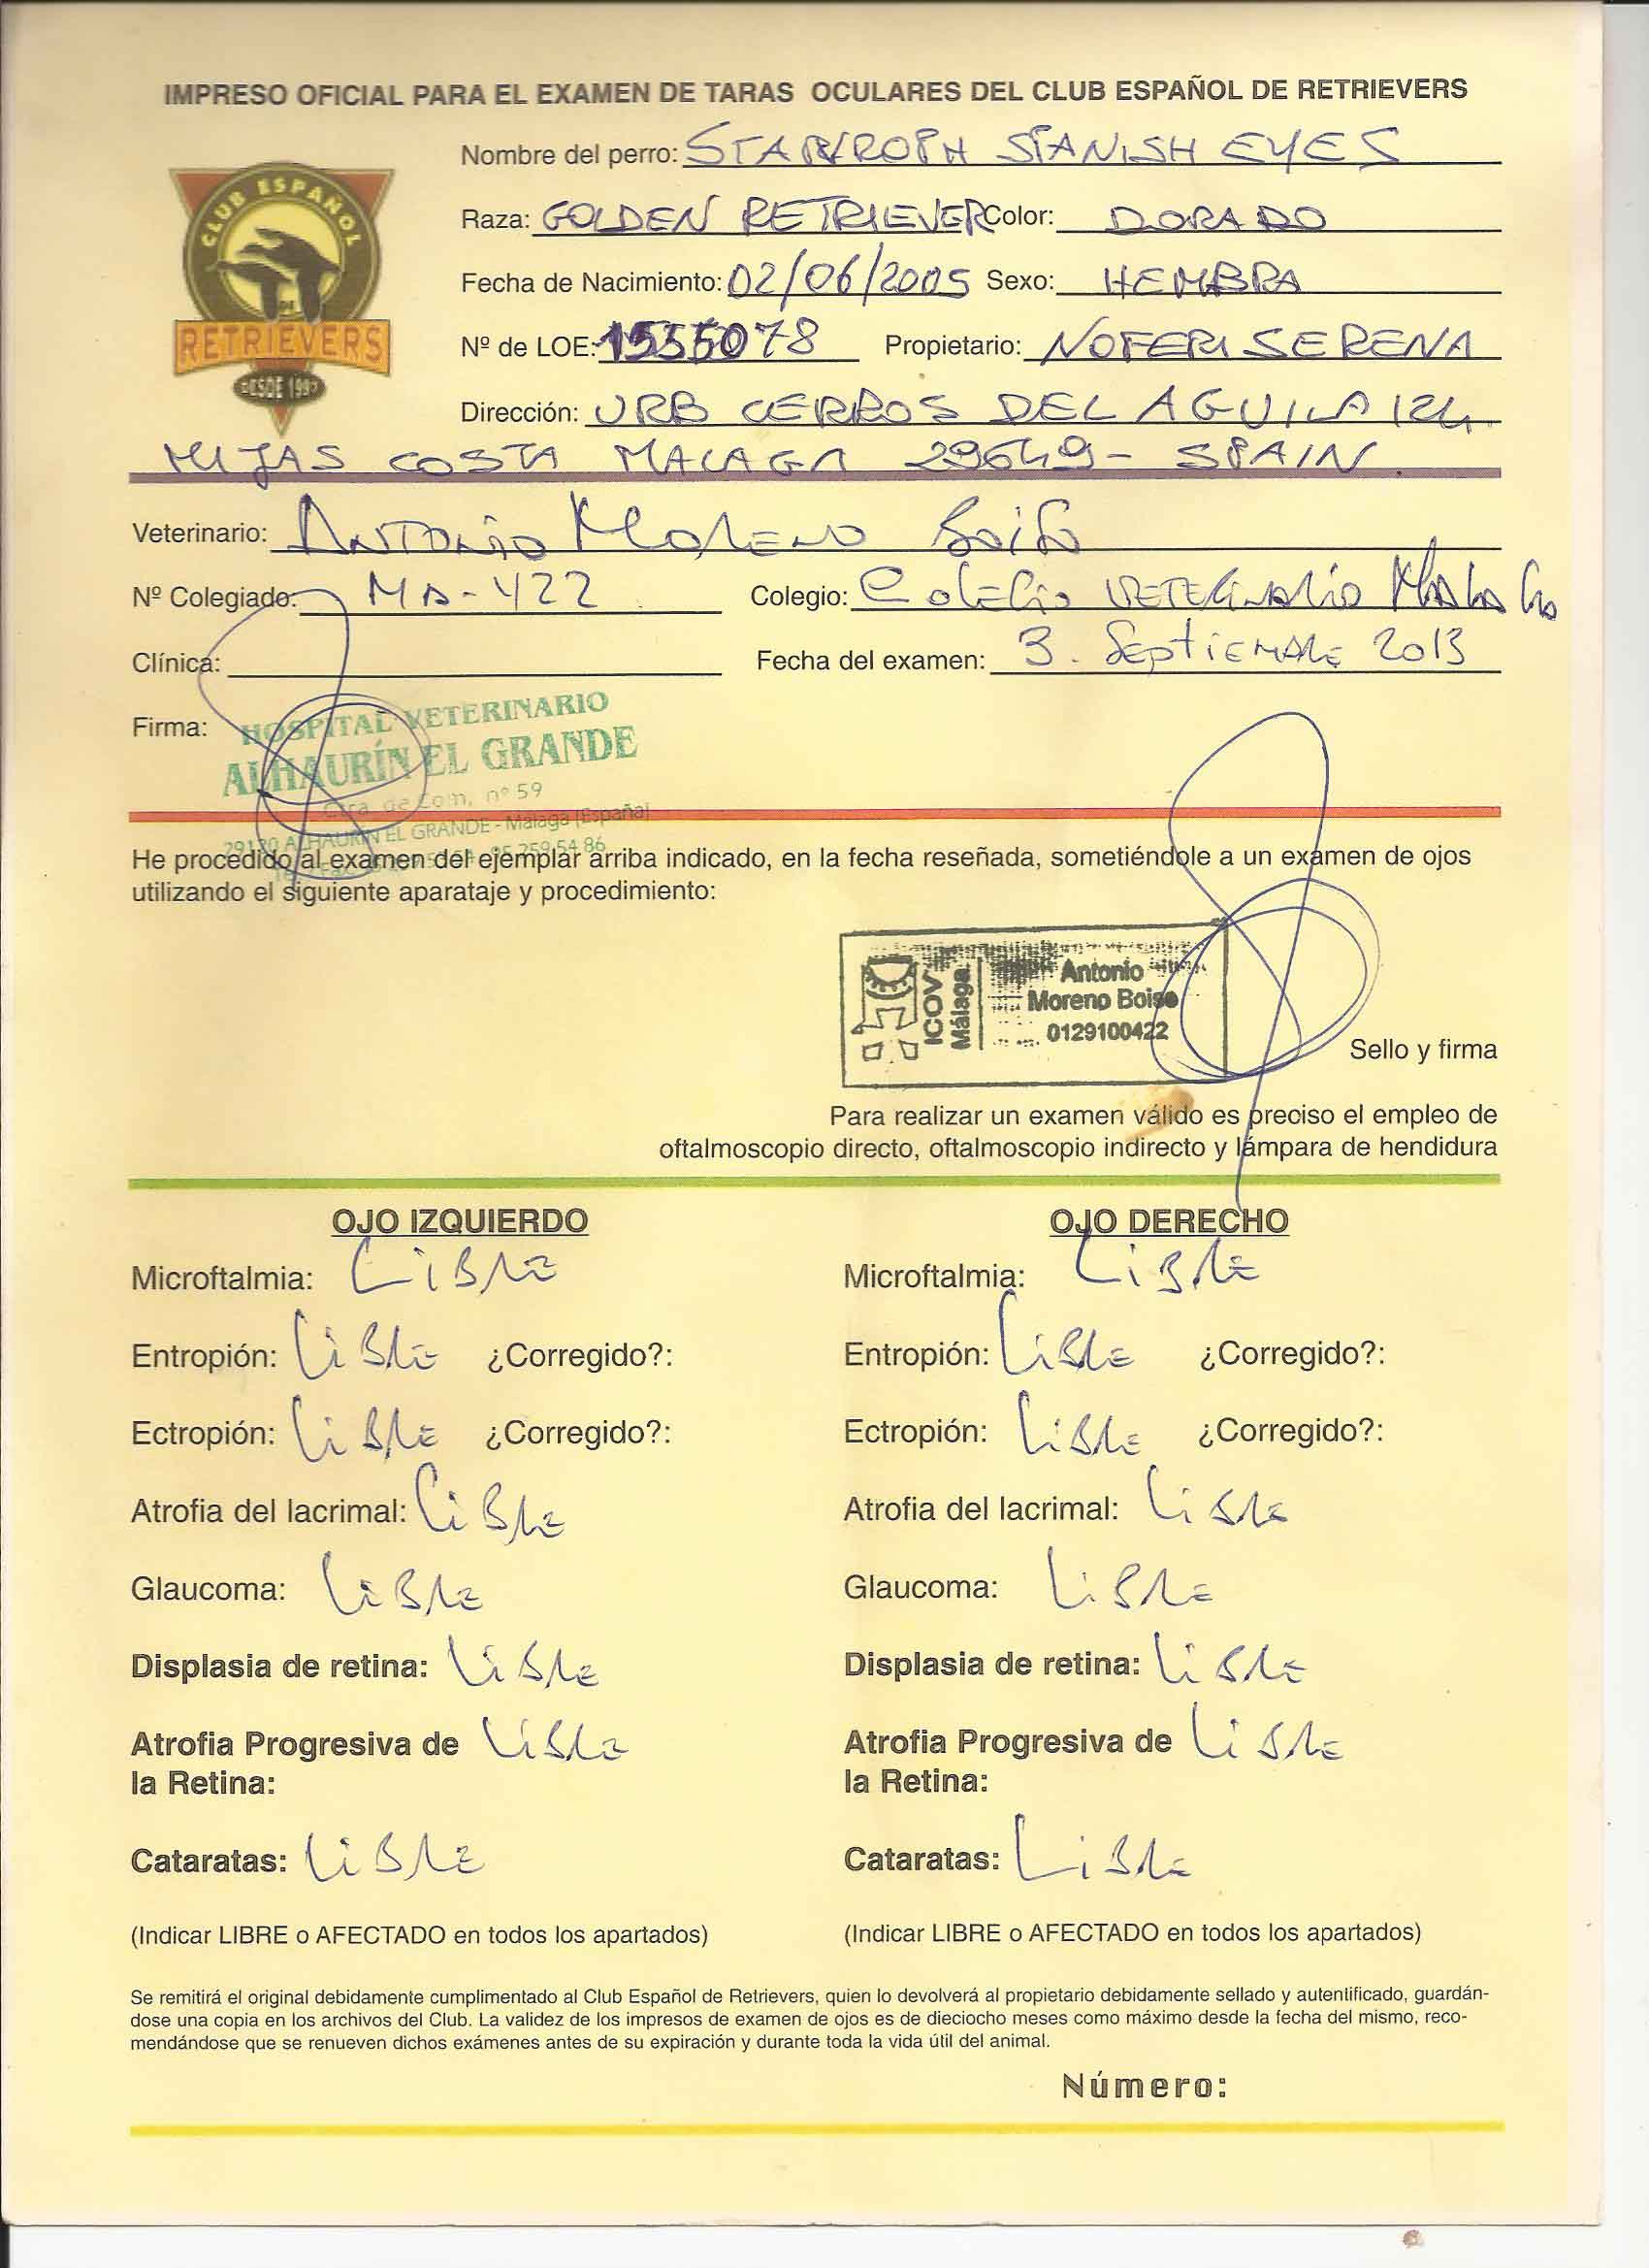 IMPRESO OFICIAL PARA EL EXAMEN DE TARAS OCULARES DEL CLUB ESPAÑOL DE RETRIEVERS
CLUB ESPAÑOL
DE
RETRIEVERS
DESDE
Nombre del perro: EYES
Raza: GOLDEN RETRIEVER Color: DORADO
Fecha de Nacimiento: 02/06/2005 Sexo: HEMBRA
Nº de LOE: 1555078 Propietario: NOFERI SERENA
Dirección: URB CERROS DEL AGUILA 124
MIJAS COSTA MALAGA 29649 - SPAIN
Veterinario: ANTONIO MORENO
Nº Colegiado: MA-422 Colegio: COLEGIO VETERINARIO MALAGA
Clínica: Fecha del examen: 3. SEPTIEMBRE 2013
Firma: HOSPITAL VETERINARIO
ALHAURÍN EL GRANDE
Ctra. de Coín, nº 59
29120 ALHAURÍN EL GRANDE - Málaga (España)
He procedido al examen del ejemplar arriba indicado, en la fecha reseñada, sometiéndole a un examen de ojos
utilizando el siguiente aparataje y procedimiento:
ICOV
Málaga
Antonio
Moreno Boiso
0129100422
Sello y firma
Para realizar un examen válido es preciso el empleo de
oftalmoscopio directo, oftalmoscopio indirecto y lámpara de hendidura
OJO IZQUIERDO
Microftalmia: LIBRE
Entropión: LIBRE ¿Corregido?:
Ectropión: LIBRE ¿Corregido?:
Atrofia del lacrimal: LIBRE
Glaucoma: LIBRE
Displasia de retina: LIBRE
Atrofia Progresiva de LIBRE
la Retina:
Cataratas: LIBRE
(Indicar LIBRE o AFECTADO en todos los apartados)
OJO DERECHO
Microftalmia: LIBRE
Entropión: LIBRE ¿Corregido?:
Ectropión: LIBRE ¿Corregido?:
Atrofia del lacrimal: LIBRE
Glaucoma: LIBRE
Displasia de retina: LIBRE
Atrofia Progresiva de LIBRE
la Retina:
Cataratas: LIBRE
(Indicar LIBRE o AFECTADO en todos los apartados)
Se remitirá el original debidamente cumplimentado al Club Español de Retrievers, quien lo devolverá al propietario debidamente sellado y autentificado, guardán-
dose una copia en los archivos del Club. La validez de los impresos de examen de ojos es de dieciocho meses como máximo desde la fecha del mismo, reco-
mendándose que se renueven dichos exámenes antes de su expiración y durante toda la vida útil del animal.
Número: